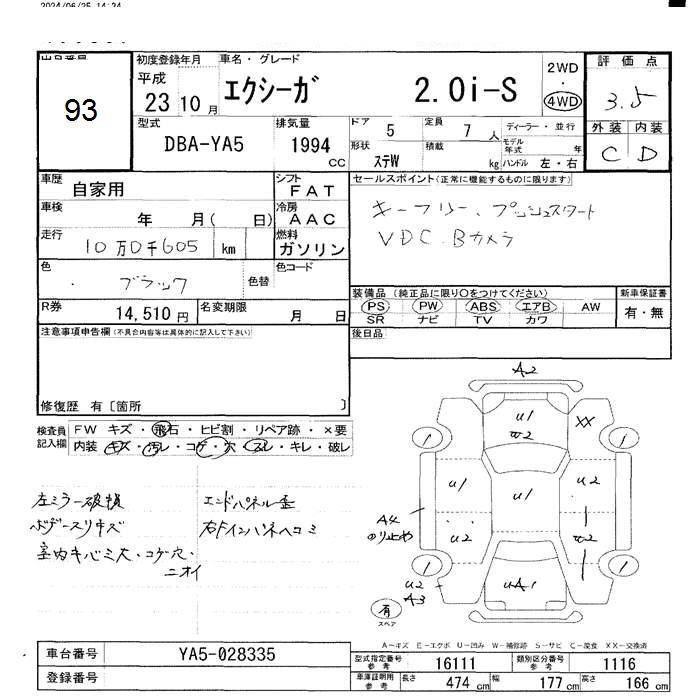 2024/06/25 14:24
93
初度登録年月
平成
23 10 月
車名・グレード
エクシーガ 2.0i-S
2WD
・
4WD
評価点
3.5
外装 内装
C D
型式
DBA-YA5
排気量
1994 CC
ドア 5
定員 7 人
ディーラー・並行
形状 ステW
積載 kg
モデル年式 年
ハンドル 左・右
車歴 自家用
シフト FAT
車検 年 月( 日)
冷房 AAC
走行 10万0千605 km
燃料 ガソリン
色 ブラック 色替
色コード
R券 14,510 円
名変期限 月 日
セールスポイント(正常に機能するものに限ります)
キーフリー、プッシュスタート
VDC.Bカメラ
装備品(純正品に限り○をつけてください)
PS PW ABS エアB AW
SR ナビ TV カワ
新車保証書
有・無
後日品
注意事項申告欄(不具合内容等は具体的に記入して下さい)
修復歴 有〔箇所 〕
検査員記入欄
FW キズ・飛石・ヒビ割・リペア跡・×要
内装 キズ・汚レ・コゲ・穴・スレ・キレ・破レ
左ミラー破損
ボデースリキズ
室内キバミ大・コゲ穴・
ニオイ
エンドパネル歪
右Fインパネヘコミ
A2
U1
W2
XX
U1
U1
U2
A4
のり止や
U2
W2
U2
A3
UA1
有
スペア
A－キズ E－エクボ U－凹み W－補修跡 S－サビ C－腐食 XX－交換済
車台番号 YA5-028335
登録番号
型式指定番号 参考 16111
類別区分番号 参考 1116
車庫証明用 参考 長さ 474 cm 幅 177 cm 高さ 166 cm